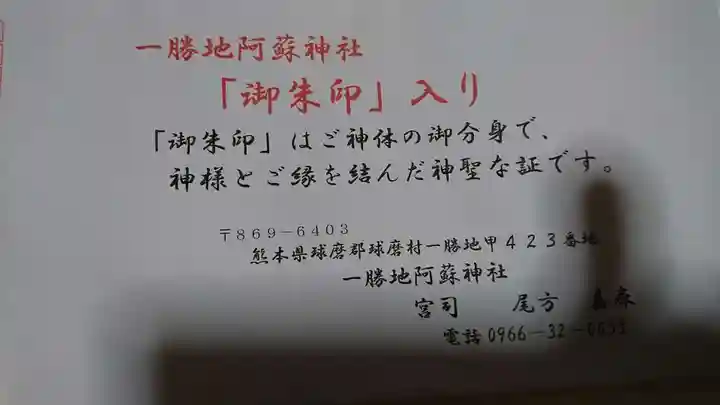 一勝地阿蘇神社
「御朱印」入り
「御朱印」はご神体の御分身で、
神様とご縁を結んだ神聖な証です。
〒869-6403
熊本県球磨郡球磨村一勝地甲423番地
一勝地阿蘇神社
宮司 尾方
電話0966-32-